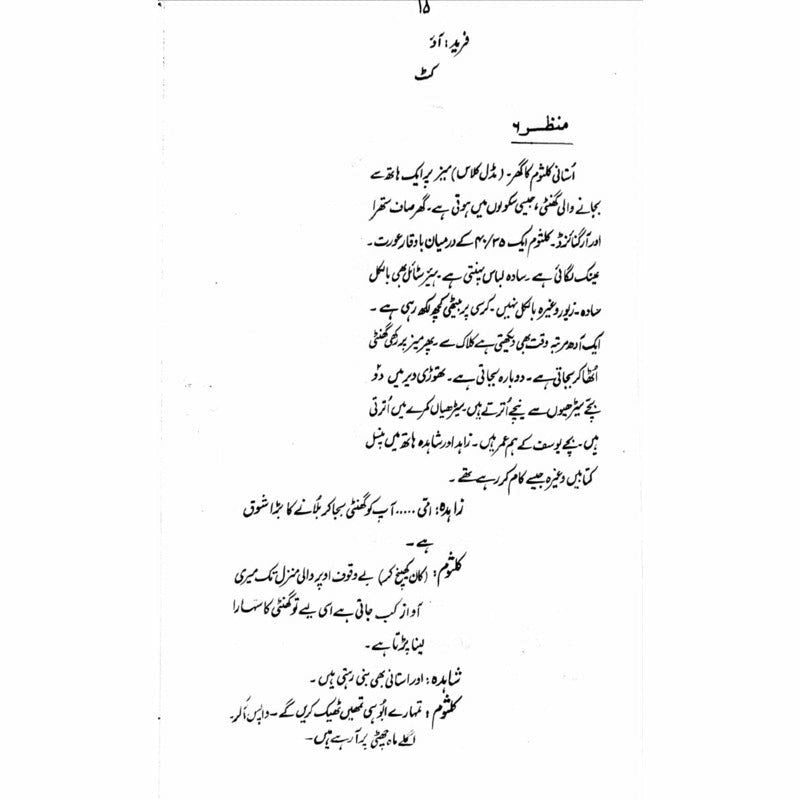 ۱۵
فرید: آؤ
کٹ
منظر ۶
اُستانی کلثوم کا گھر۔ (مڈل کلاس) میز پر ایک ہاتھ سے
بجانے والی گھنٹی، جیسی سکولوں میں ہوتی ہے۔ گھر صاف ستھرا
اور آرگنائزڈ۔ کلثوم ایک ۴۰/۳۵ کے درمیان باوقار عورت۔
عینک لگائی ہے۔ سادہ لباس پہنتی ہے۔ ہیئر سٹائل بھی بالکل
سادہ۔ زیور وغیرہ بالکل نہیں۔ کرسی پر بیٹھی کچھ لکھ رہی ہے۔
ایک آدھ مرتبہ وقت بھی دیکھتی ہے کلاک سے۔ پھر میز پر رکھی گھنٹی
اُٹھا کر بجاتی ہے۔ دوبارہ بجاتی ہے۔ تھوڑی دیر میں دو
بچے سیڑھیوں سے نیچے اُترتے ہیں۔ سیڑھیاں کمرے میں اُترتی
ہیں۔ بچے یوسف کے ہم عمر ہیں۔ زاہد اور شاہدہ ہاتھ میں پنسل
کتابیں وغیرہ جیسے کام کر رہے تھے۔
زاہدہ: امّی ..... آپ کو گھنٹی بجا کر بُلانے کا بڑا شوق
ہے۔
کلثوم: (کان کھینچ کر) بے وقوف اوپر والی منزل تک میری
آواز کب جاتی ہے اسی لیے تو گھنٹی کا سہارا
لینا پڑتا ہے۔
شاہدہ: اور استانی بھی بنی رہتی ہیں۔
کلثوم: تمہارے ابّو ہی تمھیں ٹھیک کریں گے۔ واپس آکر۔
اگلے ماہ چھٹی پر آ رہے ہیں۔